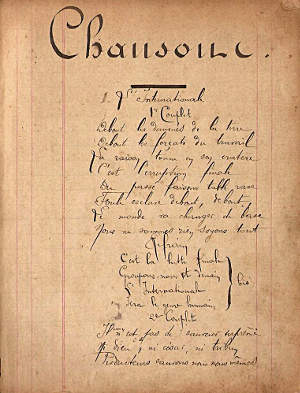 Chansons.
L'Internationale
1er Couplet
Debout les damnés de la terre
Debout les forçats du
La raison tonne en son cratère
C'est l'eruption finale
Du passé faisons table rase
Foule esclave debout, debout
Le monde va changer de base
Nous ne sommes rien soyons tout
Refrain
C'est la lutte finale
Groupons nous et demain
L'Internationale
sera le genre humain
bis
2e Couplet
Il n'est pas de sauveur suprême
Ni dieu, ni césar, ni tribun
Producteurs sauvons nous nous mêmes